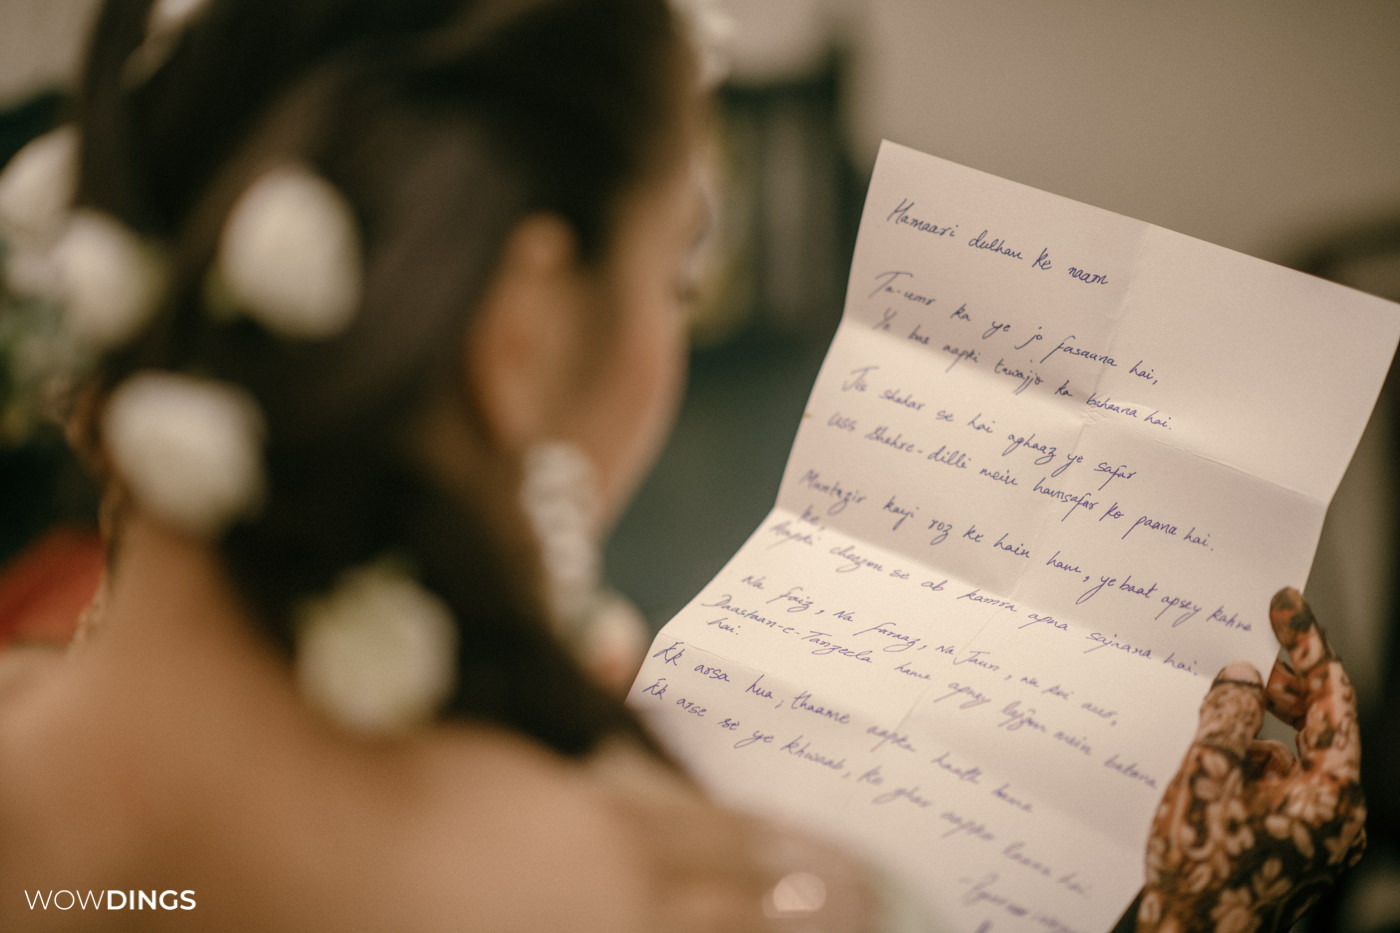 Hamaari dulhan ke naam
Ta-umr ka ye jo fasaana hai,
Ye bas aapki tawajjo ka bahaana hai.
Jis shahar se hai aghaaz ye safar
uss Shahre-dilli mein hamsafar ko paana hai.
Muntazir kayi roz ke hain ham, ye baat apsey kehna
hai,
Aapki cheezon se ab kamra apna sajaana hai.
Na Faiz, Na Faraaz, Na Jaun, na koi aur,
Daastaan-e-Tanzeela hame apney lafzon mein batana
hai.
Ek arsa hua, thaame aapka haath hame
Ek arse se ye khwaab, ke ghar aapko laana hai.
WOWDINGS